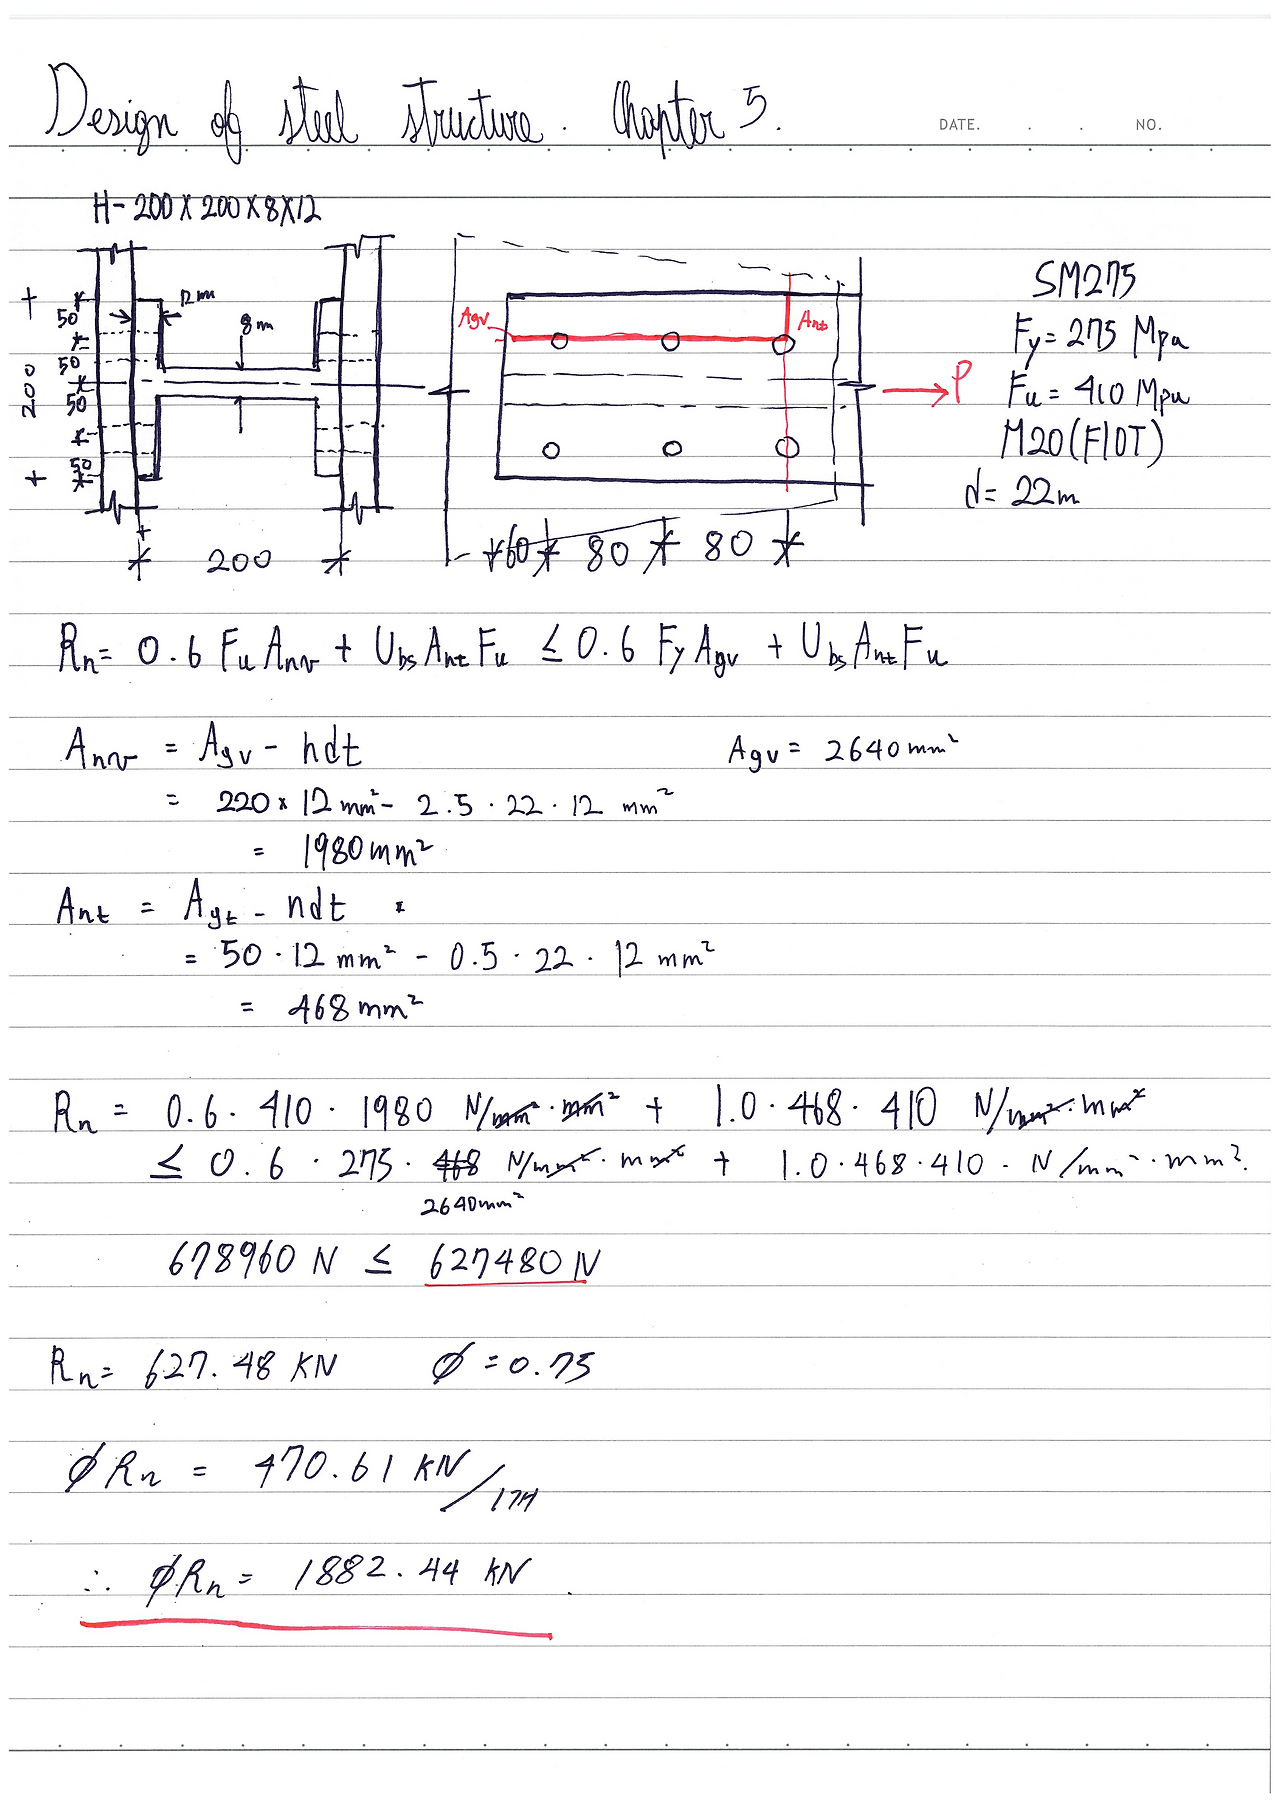 Design of steel structure. Chapter 5.
DATE. . . NO.
H-200×200×8×12
12mm
8m
50
50
50
50
200
200
Agv
Ant
P
60 80 80
SM275
Fy = 275 Mpa
Fu = 410 Mpa
M20(F10T)
d = 22m
Rn = 0.6 Fu Anv + Ubs Ant Fu ≤ 0.6 Fy Agv + Ubs Ant Fu
Anv = Agv - ndt Agv = 2640mm²
= 220 × 12mm² - 2.5 · 22 · 12 mm²
= 1980mm²
Ant = Agt - ndt
= 50 · 12 mm² - 0.5 · 22 · 12 mm²
= 468mm²
Rn = 0.6 · 410 · 1980 N/mm² · mm² + 1.0 · 468 · 410 N/mm² · mm²
≤ 0.6 · 275 · 468 N/mm² · mm² + 1.0 · 468 · 410 · N/mm² · mm².
2640mm²
678960 N ≤ 627480 N
Rn = 627.48 KN ∅ = 0.75
∅Rn = 470.61 KN
∴ ∅Rn = 1882.44 KN